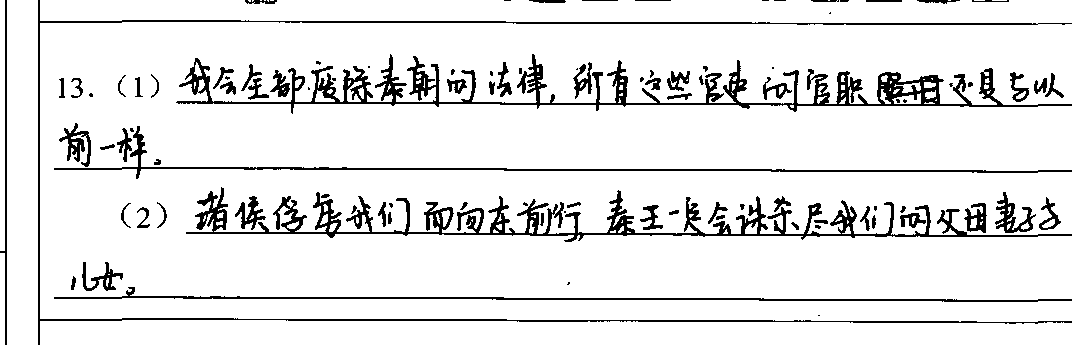 13.（1）我会全部废除秦朝的法律，所有这些官吏的官职还是与以
前一样。
（2）诸侯俘虏我们而向东前行，秦王一定会诛杀尽我们的父母妻子
儿女。